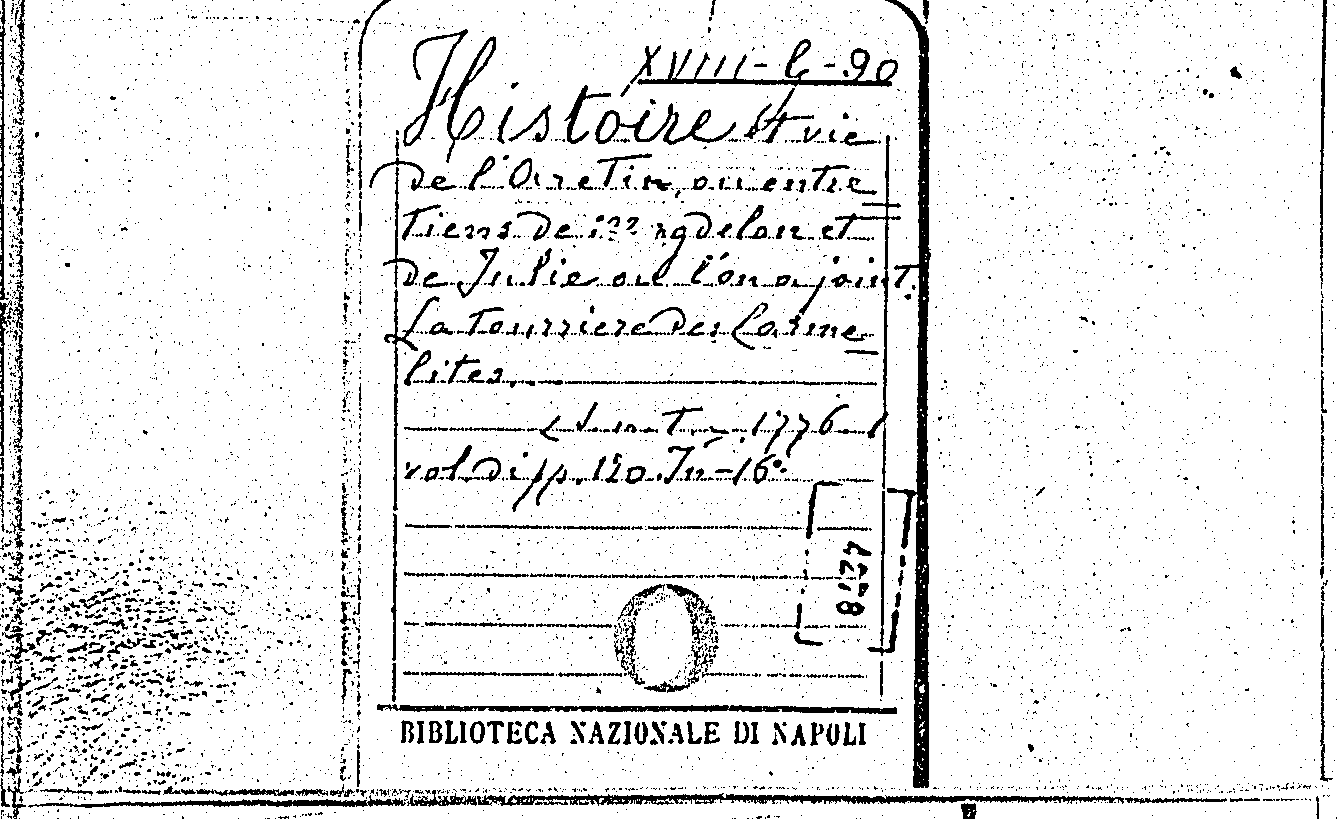 XVIII-b-90
Histoire et vie
de l'Aretin, ou entre
tiens de Magdelon et
de Julie ou l'on a joint
La Tourriere des Carme
lites.
1776. 1
vol. di pp. 120. In-16°.
BIBLIOTECA NAZIONALE DI NAPOLI